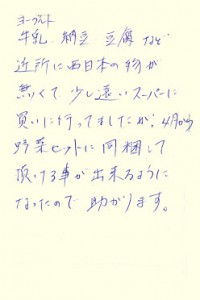 ヨーグルト
牛乳、納豆 豆腐 など
近所に西日本の物が
無くて 少し遠いスーパーに
買いに行ってましたが、4月から
野菜セットに同梱して
頂ける事が出来るように
なったので 助かります。